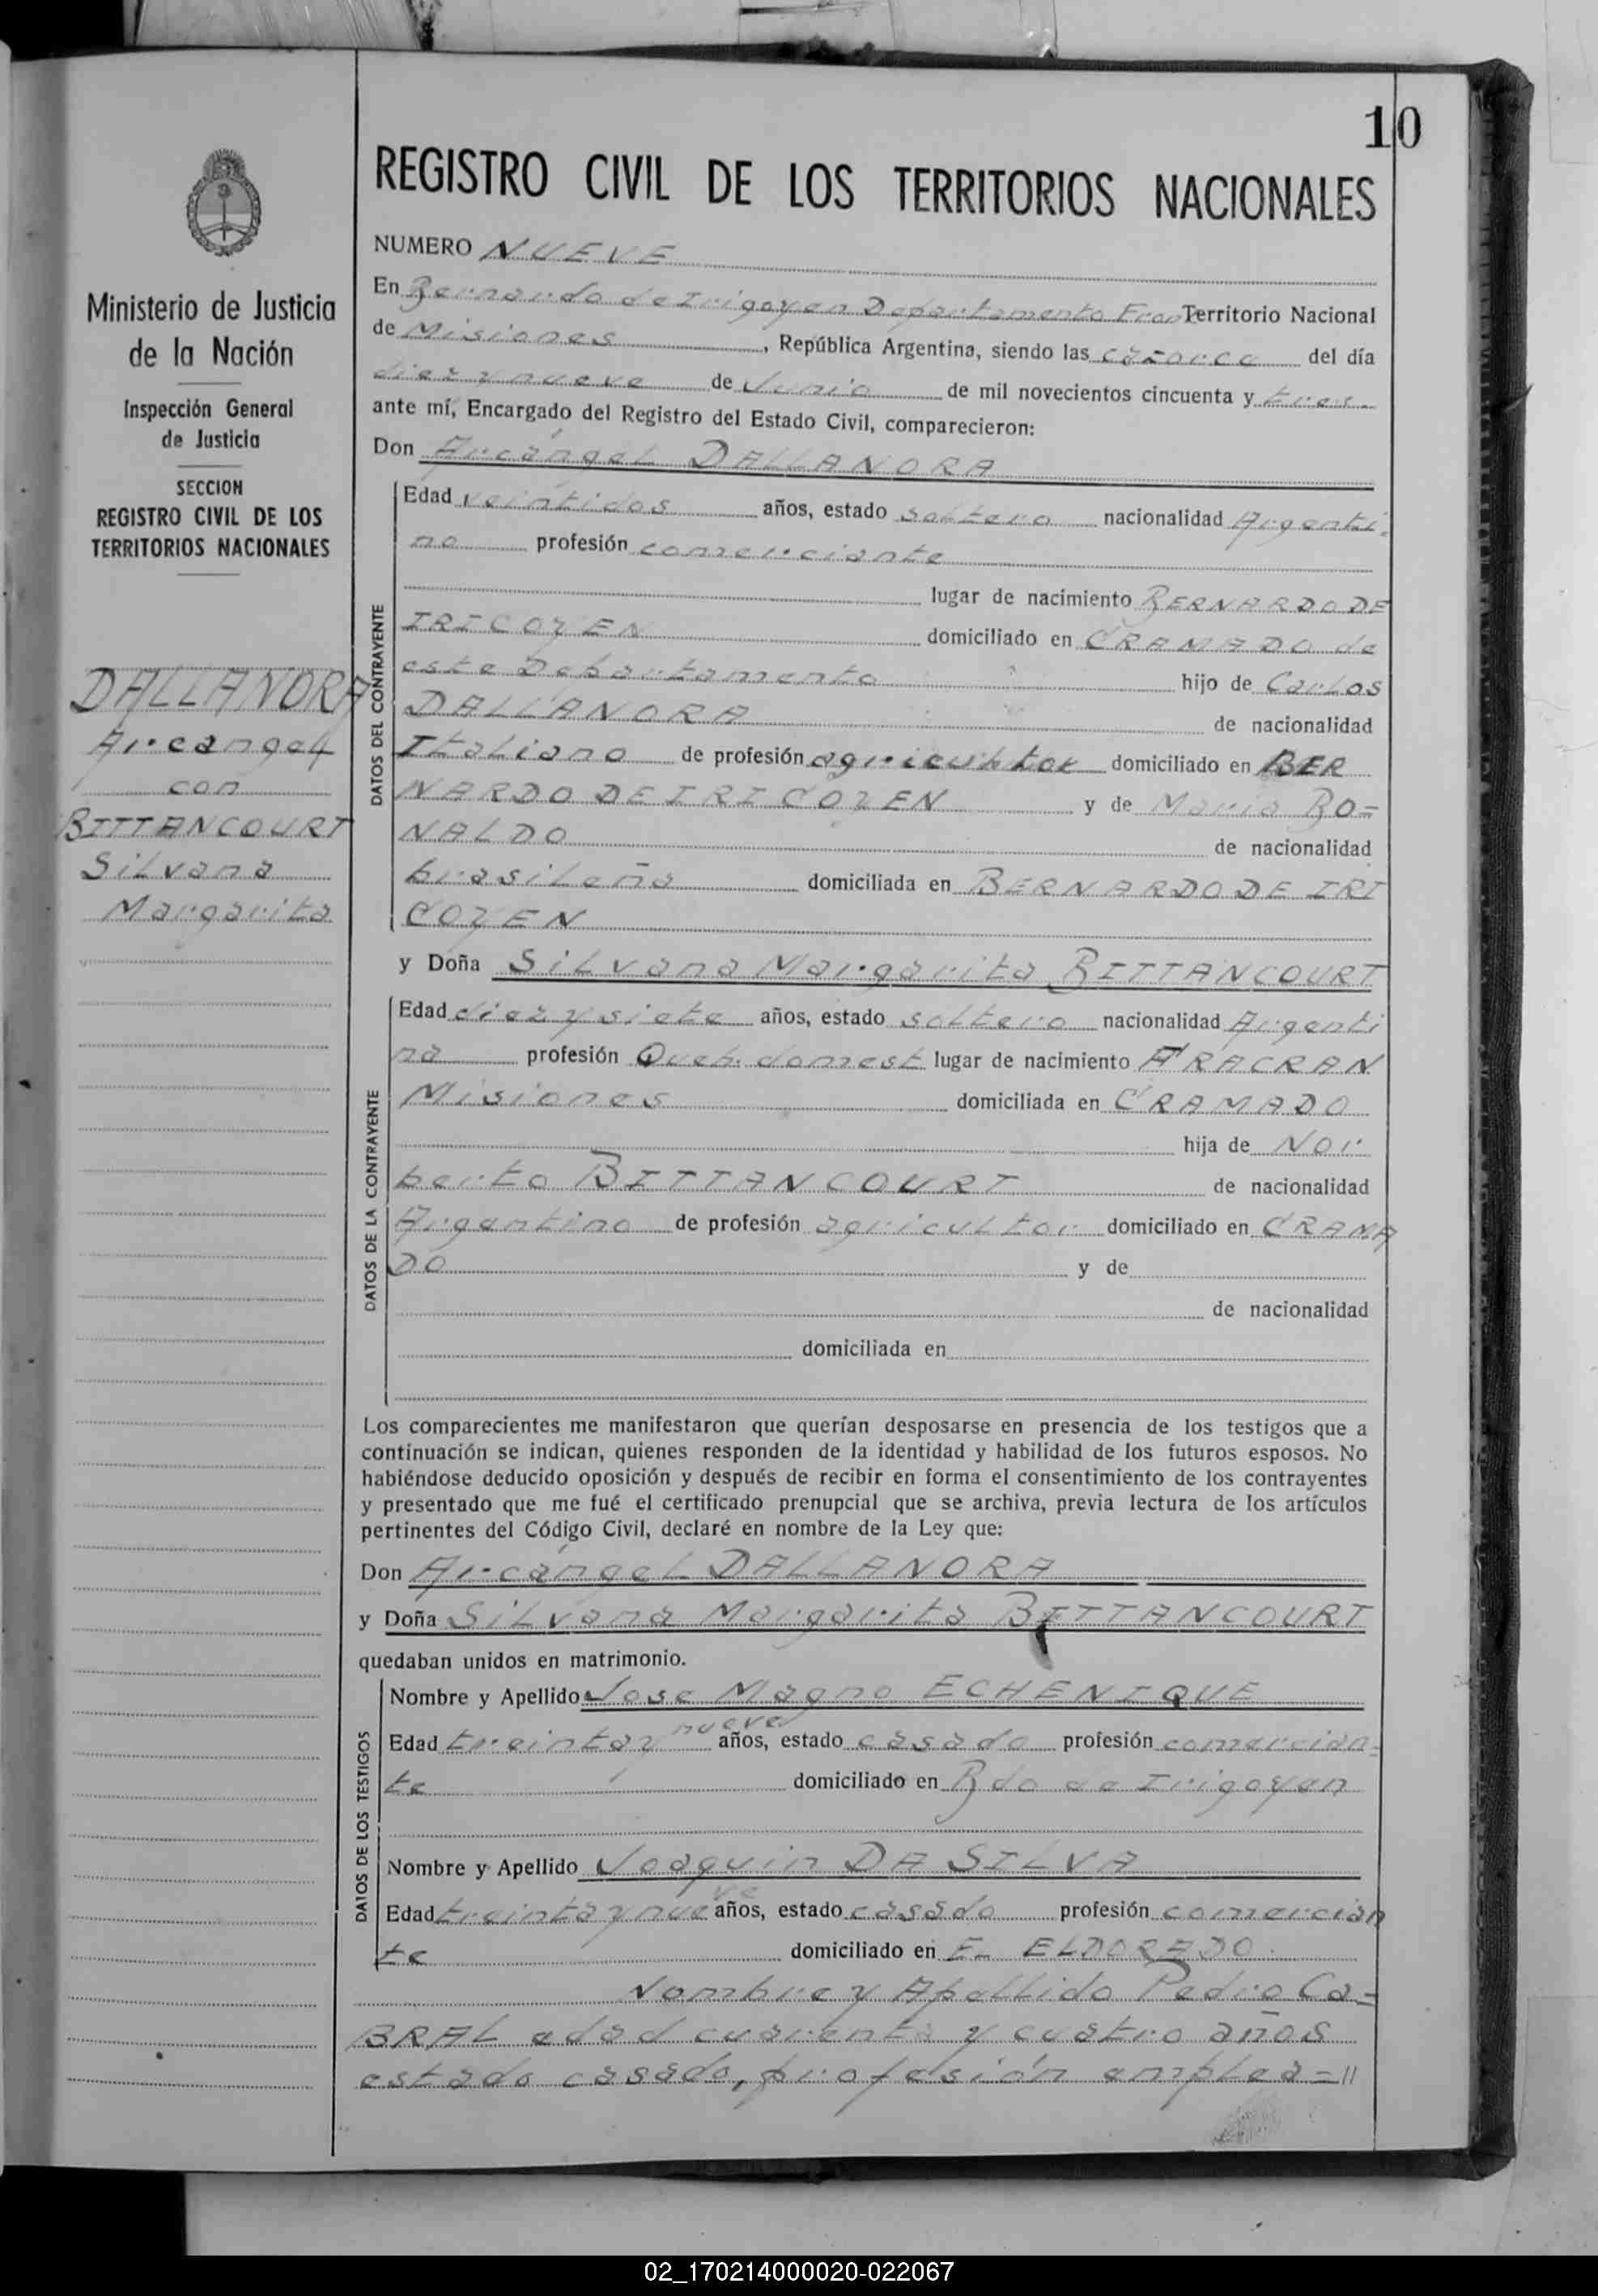 10
REGISTRO CIVIL DE LOS TERRITORIOS NACIONALES
Ministerio de Justicia
de la Nación
Inspección General
de Justicia
SECCION
REGISTRO CIVIL DE LOS
TERRITORIOS NACIONALES
DALLANORA
Arcangel
con
BITTANCOURT
Silvana
Margarita
NUMERO NUEVE
En Bernardo de Irigoyen Departamento Fron Territorio Nacional
de Misiones, República Argentina, siendo las catorce del día
diez y nueve de Junio de mil novecientos cincuenta y tres.
ante mí, Encargado del Registro del Estado Civil, comparecieron:
Don Arcángel DALLANORA
DATOS DEL CONTRAYENTE
Edad veintidos años, estado soltero nacionalidad Argenti-
no profesión comerciante
lugar de nacimiento BERNARDO DE
IRIGOYEN domiciliado en GRAMADO de
este Departamento hijo de Carlos
DALLANORA de nacionalidad
Italiano de profesión agricultor domiciliado en BER
NARDO DE IRIGOYEN y de Maria BO=
NALDO de nacionalidad
brasileña domiciliada en BERNARDO DE IRI
GOYEN
y Doña Silvana Margarita BITTANCOURT
DATOS DE LA CONTRAYENTE
Edad diez y siete años, estado soltero nacionalidad Argenti
na profesión Queh. domest lugar de nacimiento ARAGRAN
Misiones domiciliada en GRAMADO
hija de Nor
berto BITTANCOURT de nacionalidad
Argentino de profesión agricultor domiciliado en GRAMA
DO y de
de nacionalidad
domiciliada en
Los comparecientes me manifestaron que querían desposarse en presencia de los testigos que a
continuación se indican, quienes responden de la identidad y habilidad de los futuros esposos. No
habiéndose deducido oposición y después de recibir en forma el consentimiento de los contrayentes
y presentado que me fué el certificado prenupcial que se archiva, previa lectura de los artículos
pertinentes del Código Civil, declaré en nombre de la Ley que:
Don Arcángel DALLANORA
y Doña Silvana Margarita BITTANCOURT
quedaban unidos en matrimonio.
DATOS DE LOS TESTIGOS
Nombre y Apellido Jose Magno ECHENIQUE
Edad treinta y nueve años, estado casado profesión comercian=
te domiciliado en Bdo de Irigoyen
Nombre y Apellido Joaquin DA SILVA
Edad treinta y nueve años, estado casado profesión comercian
te domiciliado en ELDORADO.
Nombre y Apellido Pedro Ca=
BRAL edad cuarenta y cuatro años
estado casado, profesión emplea=//
02_170214000020-022067